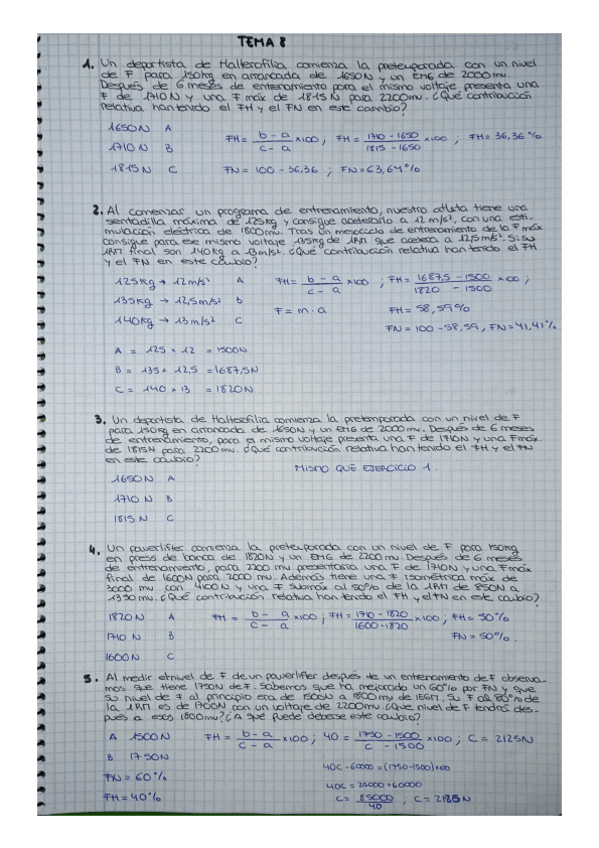 TEMA 8
1. Un deportista de Halterofilia comienza la pretemporada con un nivel
de F para 150kg en arrancada de 1650N y un EMG de 2000mv.
Después de 6 meses de entrenamiento para el mismo voltaje presenta una
F de 1710N y una F máx de 1815N para 2200mv. ¿Qué contribución
relativa han tenido el FH y el FN en este cambio?
1650N A
1710N B
1815N C
FH = b - a / c - a x100 ; FH = 1710 - 1650 / 1815 - 1650 x100 ; FH = 36,36%
FN = 100 - 36,36 ; FN = 63,64%
2. Al comenzar un programa de entrenamiento, nuestro atleta tiene una
sentadilla máxima de 125kg y consigue acelerarlo a 12 m/s², con una esti-
mulación eléctrica de 1800mv. Tras un mesociclo de entrenamiento de la F máx
consigue para ese mismo voltaje 135kg de 1RM que acelera a 12,5m/s². Si su
1RM final son 140kg a 13m/s². ¿Qué contribución relativa han tenido el FH
y el FN en este cambio?
125kg → 12m/s² A
135kg → 12,5m/s² B
140kg → 13m/s² C
FH = b - a / c - a x100 ; FH = 1687,5 - 1500 / 1820 - 1500 x100 ;
F = m · a
FH = 58,59%
FN = 100 - 58,59 , FN = 41,41%
A = 125 x 12 = 1500N
B = 135 x 12,5 = 1687,5N
C = 140 x 13 = 1820N
3. Un deportista de Halterofilia comienza la pretemporada con un nivel de F
para 150kg en arrancada de 1650N y un EMG de 2000mv. Después de 6 meses
de entrenamiento, para el mismo voltaje presenta una F de 1710N y una Fmáx.
de 1815N para 2200mv. ¿Qué contribución relativa han tenido el FH y el FN
en este cambio?
MISMO QUE EJERCICIO 1.
1650N A
1710N B
1815N C
4. Un powerlifter comienza la pretemporada con un nivel de F para 150kg
en press de banca de 1820N y un EMG de 2200mv. Después de 6 meses
de entrenamiento, para 2200 mv presentaria una F de 1710N y una Fmáx
final de 1600N para 2000 mv. Además tiene una F isométrica máx de
3000 mv con 4100N y una F submáx al 50% de la 1RM de 850N a
1350mv. ¿Qué contribución relativa han tenido el FH y el FN en este cambio?
1820N A
1710N B
1600N C
FH = b - a / c - a x100 ; FH = 1710 - 1820 / 1600 - 1820 x100 ; FH = 50%
FN = 50%.
5. Al medir el nivel de F de un powerlifter después de un entrenamiento de F observa-
mos que tiene 1750N de F. Sabemos que ha mejorado un 60% por FN y que
su nivel de F al principio era de 1500N a 1800mv de 1RM. Su F al 80% de
la 1RM es de 1700N con un voltaje de 2200mv. ¿Qué nivel de F tendrá des-
pués a esos 1800mv? ¿A qué puede deberse este cambio?
A 1500N
B 1750N
FN = 60%
FH = 40%
FH = b - a / c - a x100 ; 40 = 1750 - 1500 / c - 1500 x100 ; C = 2125N
40C - 60000 = (1750 - 1500) x100
40C = 25000 + 60000
C = 85000 / 40 , C = 2125N